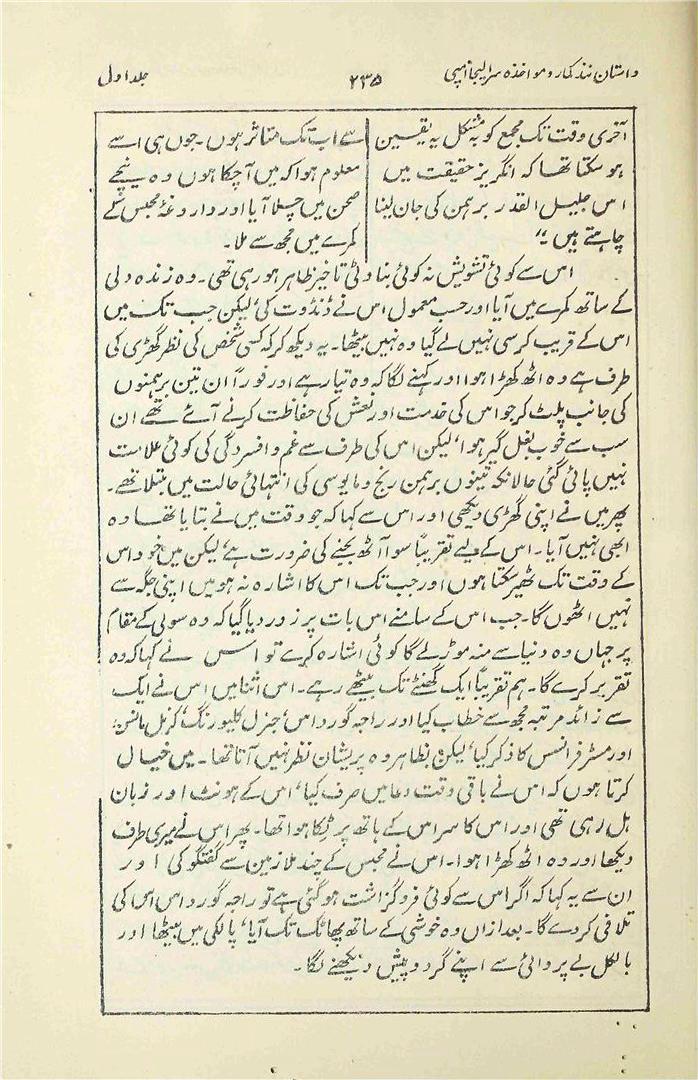 داستان نند کمار و مواخذہ سر الیجا امپی
۲۳۵
جلد اول
آخری وقت تک مجمع کو بہ مشکل یہ یقین
ہو سکتا تھا کہ انگریز حقیقت میں
اس جلیل القدر برہمن کی جان لینا
چاہتے ہیں ۔“
سے اب تک متاثر ہوں ۔ جوں ہی اسے
معلوم ہوا کہ میں آچکا ہوں وہ نیچے
صحن میں چلا آیا اور داروغۂ محبس کے
کمرے میں مجھ سے ملا ۔
اس سے کوئی تشویش نہ کوئی بناوٹی تاخیر ظاہر ہو رہی تھی ۔ وہ زندہ دلی
کے ساتھ کمرے میں آیا اور حسب معمول اس نے ڈنڈوت کی‘ لیکن جب تک میں
اس کے قریب کرسی نہیں لے گیا وہ نہیں بیٹھا ۔ یہ دیکھ کر کہ کسی شخص کی نظر گھڑی کی
طرف ہے وہ اٹھ کھڑا ہوا اور کہنے لگا کہ وہ تیار ہے اور فوراً ان تین برہمنوں
کی جانب پلٹ کر جو اس کی خدمت اور نعش کی حفاظت کرنے آئے تھے ان
سب سے خوب بغل گیر ہوا‘ لیکن اس کی طرف سے غم و افسردگی کی کوئی علامت
نہیں پائی گئی حالانکہ تینوں برہمن رنج و مایوسی کی انتہائی حالت میں مبتلا تھے ۔
پھر میں نے اپنی گھڑی دیکھی اور اس سے کہا کہ جو وقت میں نے بتایا تھا وہ
ابھی نہیں آیا ۔ اس کے لیے تقریباً سوا آٹھ بجنے کی ضرورت ہے‘ لیکن میں خود اس
کے وقت تک ٹھیر سکتا ہوں اور جب تک اس کا اشارہ نہ ہو میں اپنی جگہ سے
نہیں اٹھوں گا ۔ جب اس کے سامنے اس بات پر زور دیا گیا کہ وہ سولی کے مقام
پر جہاں وہ دنیا سے منہ موڑ لے گا کوئی اشارہ کرے تو اس نے کہا کہ وہ
تقریر کرے گا ۔ ہم تقریباً ایک گھنٹے تک بیٹھے رہے ۔ اس اثنا میں اس نے ایک
سے زائد مرتبہ مجھ سے خطاب کیا اور راجہ گورداس‘ جنرل کلیورنگ‘ کرنل مانسن‘
اور مسٹر فرانسس کا ذکر کیا‘ لیکن بظاہر وہ پریشان نظر نہیں آتا تھا ۔ میں خیال
کرتا ہوں کہ اس نے باقی وقت دعا میں صرف کیا‘ اس کے ہونٹ اور زبان
ہل رہی تھی اور اس کا سر اس کے ہاتھ پر ٹکا ہوا تھا ۔ پھر اس نے میری طرف
دیکھا اور وہ اٹھ کھڑا ہوا ۔ اس نے محبس کے چند ملازمین سے گفتگو کی اور
ان سے یہ کہا کہ اگر اس سے کوئی فروگزاشت ہو گئی ہے تو راجہ گورداس اس کی
تلافی کر دے گا ۔ بعد ازاں وہ خوشی کے ساتھ پھاٹک تک آیا‘ پالکی میں بیٹھا اور
بالکل بے پروائی سے اپنے گرد و پیش دیکھنے لگا ۔